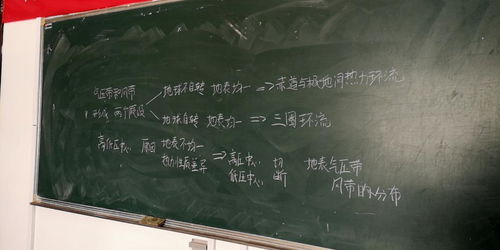 气压带和风带 地球不自转 地表均一 => 赤道与极地间热力环流
形成 两个假设 地球自转 地表均一 => 三圈环流
高低压中心 原因 地表不均一 => 高压中心 切 地表气压带
热力性质差异 低压中心 断 风带的分布